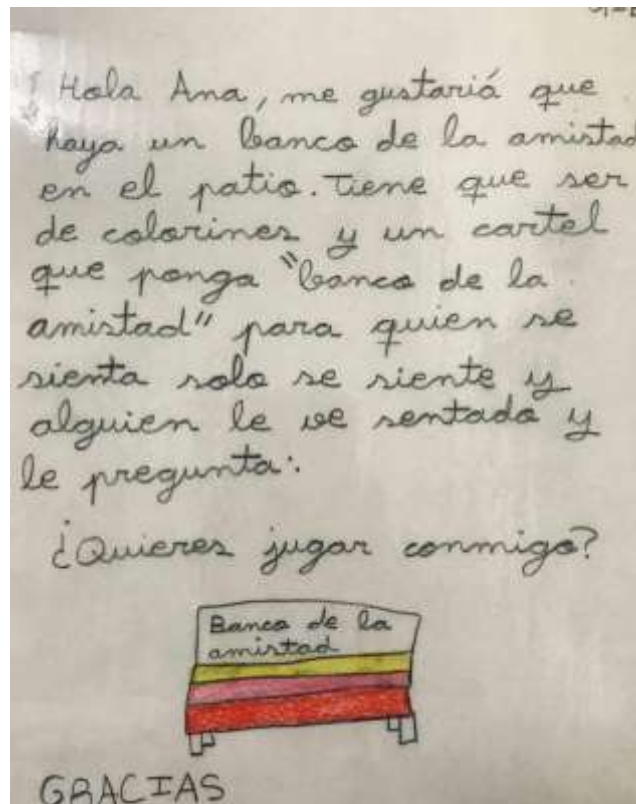 Hola Ana, me gustariá que
haya un banco de la amistad
en el patio. Tiene que ser
de colorines y un cartel
que ponga "banco de la
amistad" para quien se
sienta solo se siente y
alguien le ve sentado y
le pregunta:
¿Quieres jugar conmigo?
Banco de la
amistad
GRACIAS